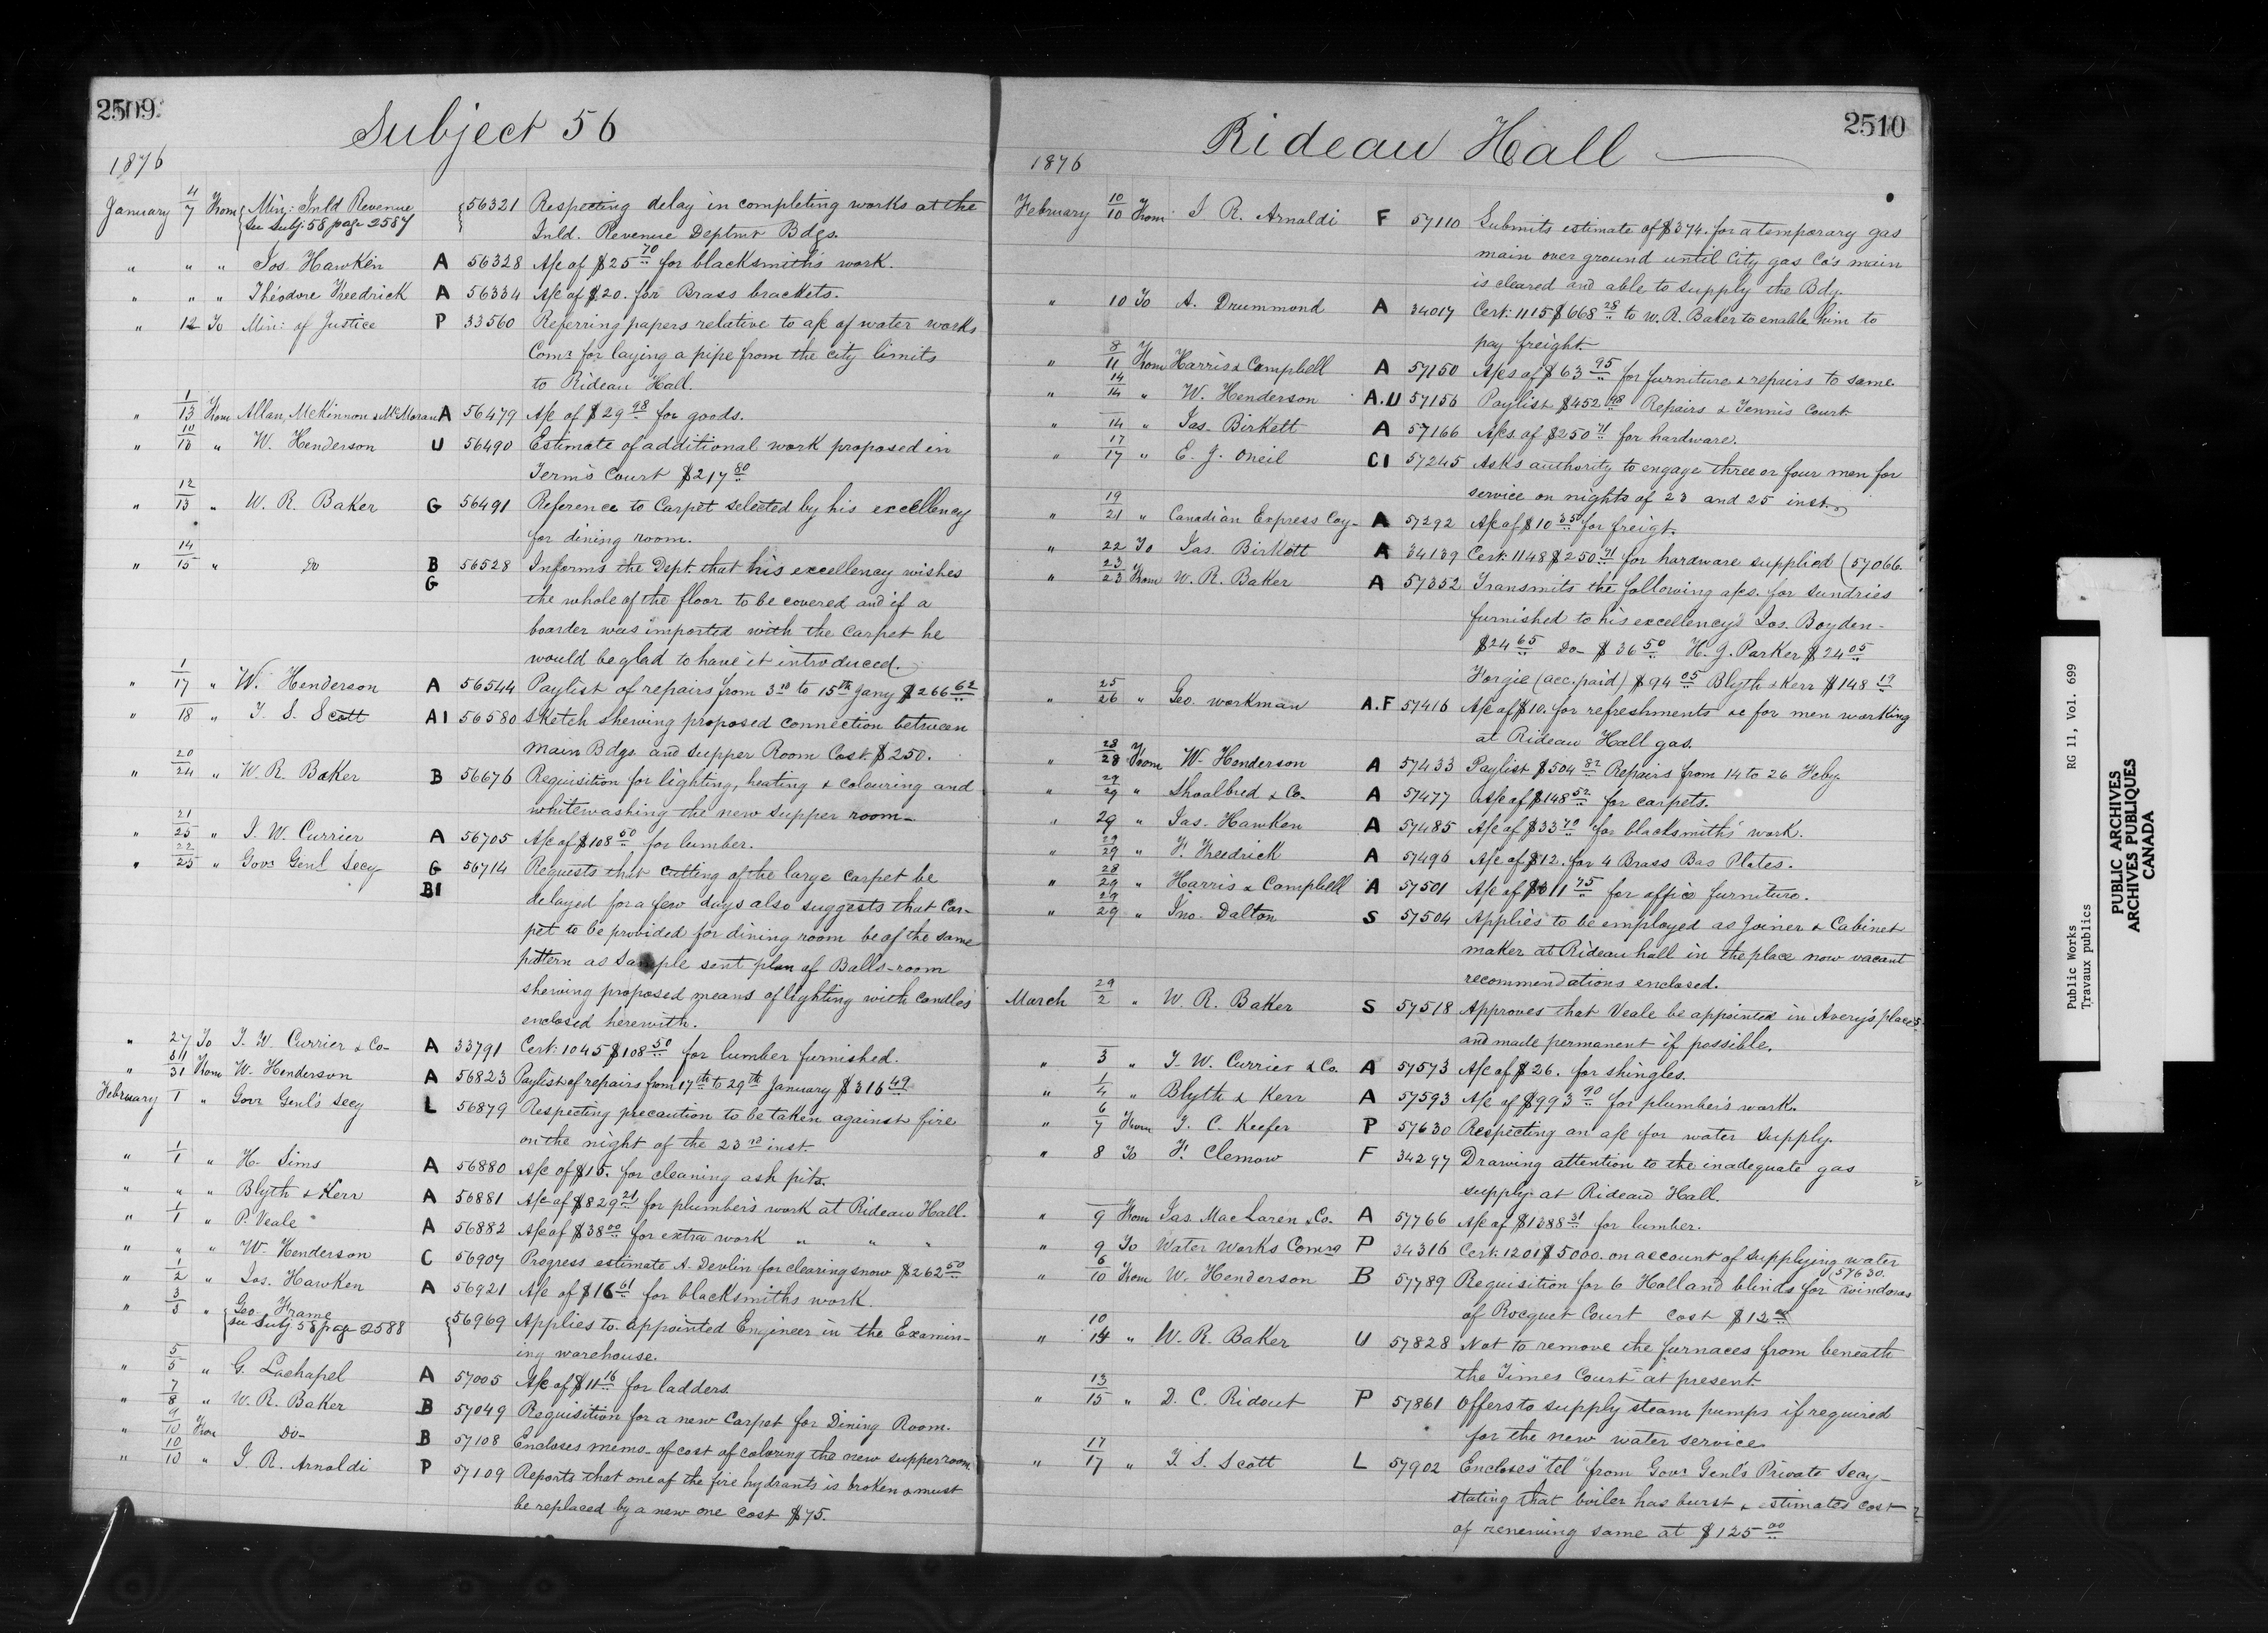 2509
Subject 56
1876
January 4/7 From { Min: Inld Revenue { 56321 Respecting delay in completing works at the
see Subj: 58 page 2587 Inld. Revenue Deptmt Bdgs.
" " " Jos. Hawken A 56328 A/c of $25 70 for blacksmith's work.
" " " Théodore Freedrick A 56334 A/c of $20. for Brass brackets.
" 12 To Min: of Justice P 33560 Referring papers relative to a/c of water works
Comrs for laying a pipe from the city limits
to Rideau Hall.
" 1/13 From Allan, McKinnon & McMoran A 56479 A/c of $29 98 for goods.
" 10/13 " W. Henderson U 56490 Estimate of additional work proposed in
Tennis Court $217 80
" 12/13 " W. R. Baker G 56491 Reference to Carpet selected by his excellency
for dining room.
" 14/15 " Do B 56528 Informs the Dept. that his excellency wishes
G the whole of the floor to be covered and if a
boarder was imported with the carpet he
would be glad to have it introduced.
" 1/17 " W. Henderson A 56544 Paylist of repairs from 3rd to 15th Jany $266 62
" 18 " T. S. Scott A1 56580 Sketch shewing proposed connection between
Main Bdgs and Supper Room Cost $250.
" 20/24 " W. R. Baker B 56676 Requisition for lighting, heating & colouring and
whitewashing the new supper room-
" 21/25 " J. W. Currier A 56705 A/c of $108 50 for lumber.
" 22/25 " Govr Genl Secy G 56714 Requests that cutting of the large carpet be
B1 delayed for a few days also suggests that Car-
pet to be provided for dining room be of the same
pattern as sample sent plan of Balls-room
shewing proposed means of lighting with candles
enclosed herewith.
" 27 To J. W. Currier & Co- A 33791 Cert: 1045 $108 50 for lumber furnished.
" 31/31 From W. Henderson A 56823 Paylist of repairs from 17th to 29th January $316 49
February 1 " Govr Genl's Secy L 56879 Respecting precaution to be taken against fire
on the night of the 23rd inst.
" 1/1 " H. Sims A 56880 A/c of $15. for cleaning ash pits.
" " " Blyth & Kerr A 56881 A/c of $829 21 for plumber's work at Rideau Hall.
" 1/1 " P. Veale A 56882 A/c of $38 00 for extra work " " "
" " " W. Henderson C 56907 Progress estimate A. Devlin for clearing snow $262 50
" 1/2 " Jos. Hawken A 56921 A/c of $16 61 for blacksmiths work.
" 3/5 " { Geo. Frame { 56969 Applies to appointed Engineer in the Examin-
see Subj 58 page 2588 ing warehouse.
" 5/5 " G. Lachapel A 57005 A/c of $11 16 for ladders
" 7/8 " W. R. Baker B 57049 Requisition for a new Carpet for Dining Room.
" 9/10 From Do- B 57108 Encloses memo- of cost of coloring the new supper room
" 10/10 " J. R. Arnoldi P 57109 Reports that one of the fire hydrants is broken & must
be replaced by a new one cost $75.
2510
Rideau Hall
1876
February 10/10 From J. R. Arnoldi F 57110 Submits estimate of $374. for a temporary gas
main over ground until City gas Co's main
is cleared and able to supply the Bdg.
" 10 To A. Drummond A 34017 Cert: 1115 $668 28 to W. R. Baker to enable him to
pay freight.
" 8/11 From Harris & Campbell A 57150 A/cs of $63 95 for furniture & repairs to same
" 14/14 " W. Henderson A.U 57156 Paylist $452 48 Repairs & Tennis Court
" 14 " Jas. Birkett A 57166 A/cs. of $250 71 for hardware.
" 17/17 " E. J. Oneil C1 57245 Asks authority to engage three or four men for
service on nights of 23 and 25 inst.
" 19/21 " Canadian Express Coy- A 57292 A/c of $10 35 for freigt.
" 22 To Jas. Birkett A 34139 Cert: 1148 $250 71 for hardware supplied (57066
" 23/23 From W. R. Baker A 57352 Transmits the following a/cs. for sundries
furnished to his excellency's Jos. Boyden-
$24 65 Do- $36 50 H. J. Parker $24 05
Forgie (acc. paid) $94 05 Blyth & Kerr $148 19
" 25/26 " Geo. workman A.F 57416 A/c of $10. for refreshments &c for men working
at Rideau Hall gas.
" 28/28 From W. Henderson A 57433 Paylist $504 82 Repairs from 14 to 26 Feby.
" 29/29 " Shoolbred & Co- A 57477 A/c of $148 52 for carpets.
" 29 " Jas. Hawken A 57485 A/c of $33 70 for blacksmiths' work.
" 29/29 " F. Freedrick A 57496 A/c of $12. for 4 Brass Bas Plates.
" 28/29 " Harris & Campbell A 57501 A/c of $311 75 for office furniture.
" 29/29 " Jno. Dalton S 57504 Applies to be employed as Joiner & Cabinet
maker at Rideau hall in the place now vacant
recommendations enclosed.
March 29/2 " W. R. Baker S 57518 Approves that Veale be appointed in Avery's place
and made permanent if possible.
" 3 " J. W. Currier & Co. A 57573 A/c of $26. for shingles.
" 1/4 " Blyth & Kerr A 57593 A/c of $993 90 for plumber's work.
" 6/7 From T. C. Keefer P 57630 Respecting an a/c for water supply.
" 8 To F. Clemow F 34297 Drawing attention to the inadequate gas
supply at Rideau Hall.
" 9 From Jas. MacLaren & Co. A 57766 A/c of $1388 31 for lumber.
" 9 To Water Works Comrs P 34316 Cert: 1201 $5000. on account of supplying water
(57630.
" 6/10 From W. Henderson B 57789 Requisition for 6 Holland blinds for windows
of Rocquet Court cost $12
" 10/14 " W. R. Baker U 57828 Not to remove the furnaces from beneath
the Times Court at present.
" 13/15 " D. C. Ridout P 57861 Offers to supply steam pumps if required
for the new water service
" 17/17 " T. S. Scott L 57902 Encloses "tel" from Govr Genl's Private Secy-
stating that boiler has burst & estimates cost
of renewing same at $125 00
Public Works RG 11, Vol. 699
Travaux publics
PUBLIC ARCHIVES
ARCHIVES PUBLIQUES
CANADA